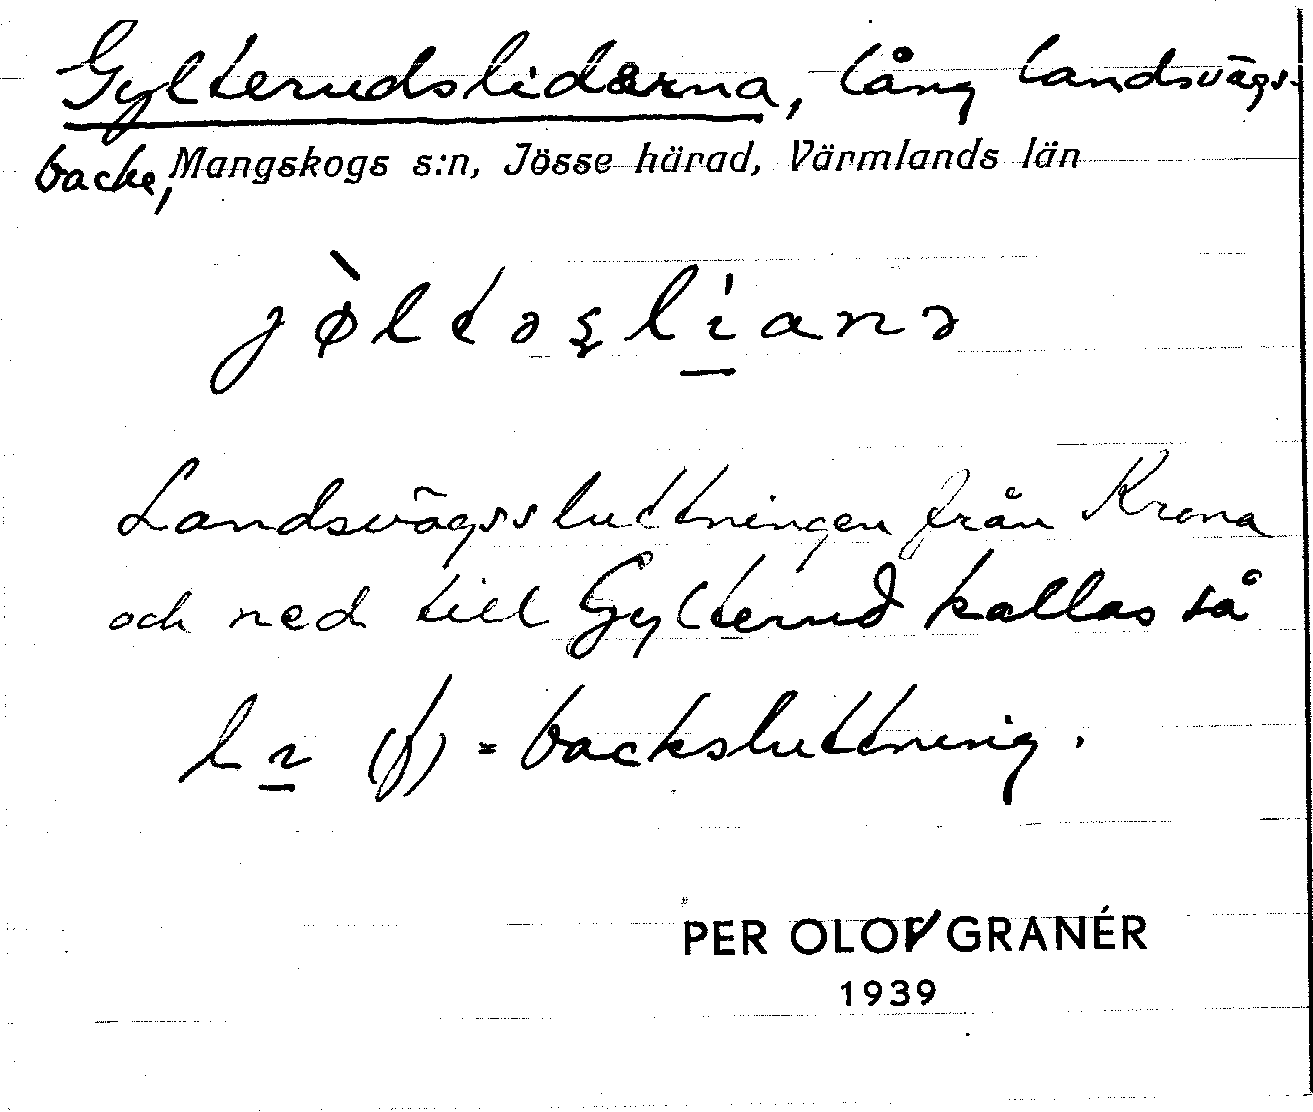 Gylterudsliderna, lång landsvägs-
backe, Mangskogs s:n, Jösse härad, Värmlands län
jø̀ltəsli̠ˈanə
Landsvägssluttningen från Krona
och ned till Gylterud kallas så
li̠ (f) = backsluttning.
PER OLOF GRANÉR
1939